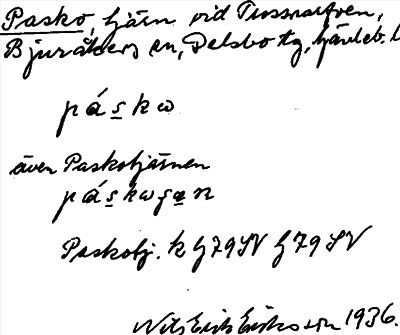 Pasko, tjärn vid Trossnarfven,
Bjuråkers sn, Delsbo tg, Gävleb. l
páskω
även Paskotjärnen
páskωʂa̱n
Paskotj. k G79SV G79SV
Nils Erik Eriksson 1936.